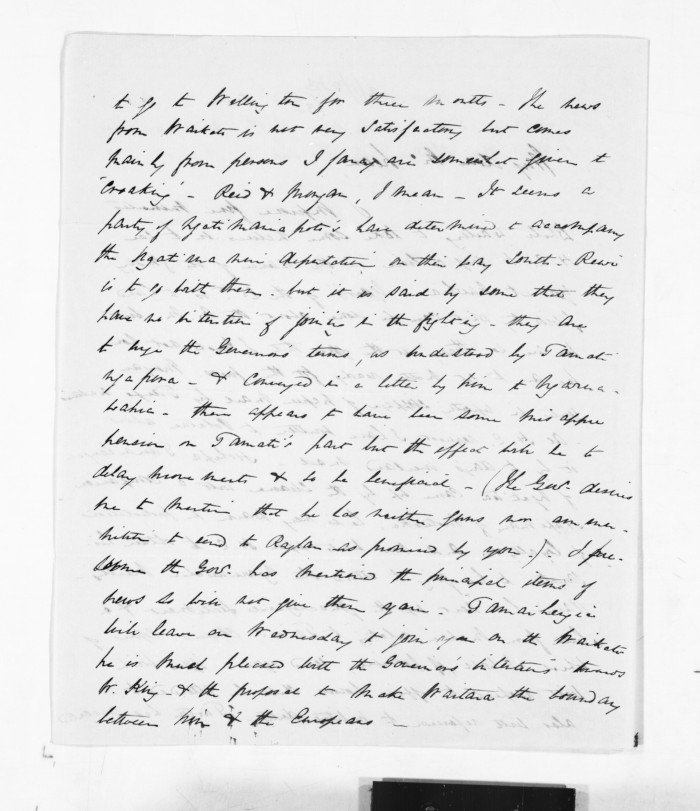 to go to Wellington for three months - The news
from Waikato is not very satisfactory but comes
mainly from persons I fancy are somewhat given to
'croaking' - Reid & Morgan, I mean - It seems a
party of Ngatimaniapoto's have determined to accompany
the Ngatimaniapoto deputation on their way South. Rewi
is to go with them. but it is said by some that they
have no intention of joining in the fighting - they are
to urge the Governor's terms, as understood by Tamati
Ngapora - & conveyed in a letter by him to
- there appears to have been some misappre
hension on Tamati's part but the effect will be to
delay movements & so be beneficial - (The Govr. desires
me to mention that he has neither guns nor ammu-
nition to send to Raglan as promised by you.). I pre-
sume the Govr. has mentioned the principal items of
news so will not give them again -
will leave on Wednesday to join you on the Waikato
he is much pleased with the Governor's intentions towards
W. King - & the proposal to make Waitara the boundary
between him & the Europeans -